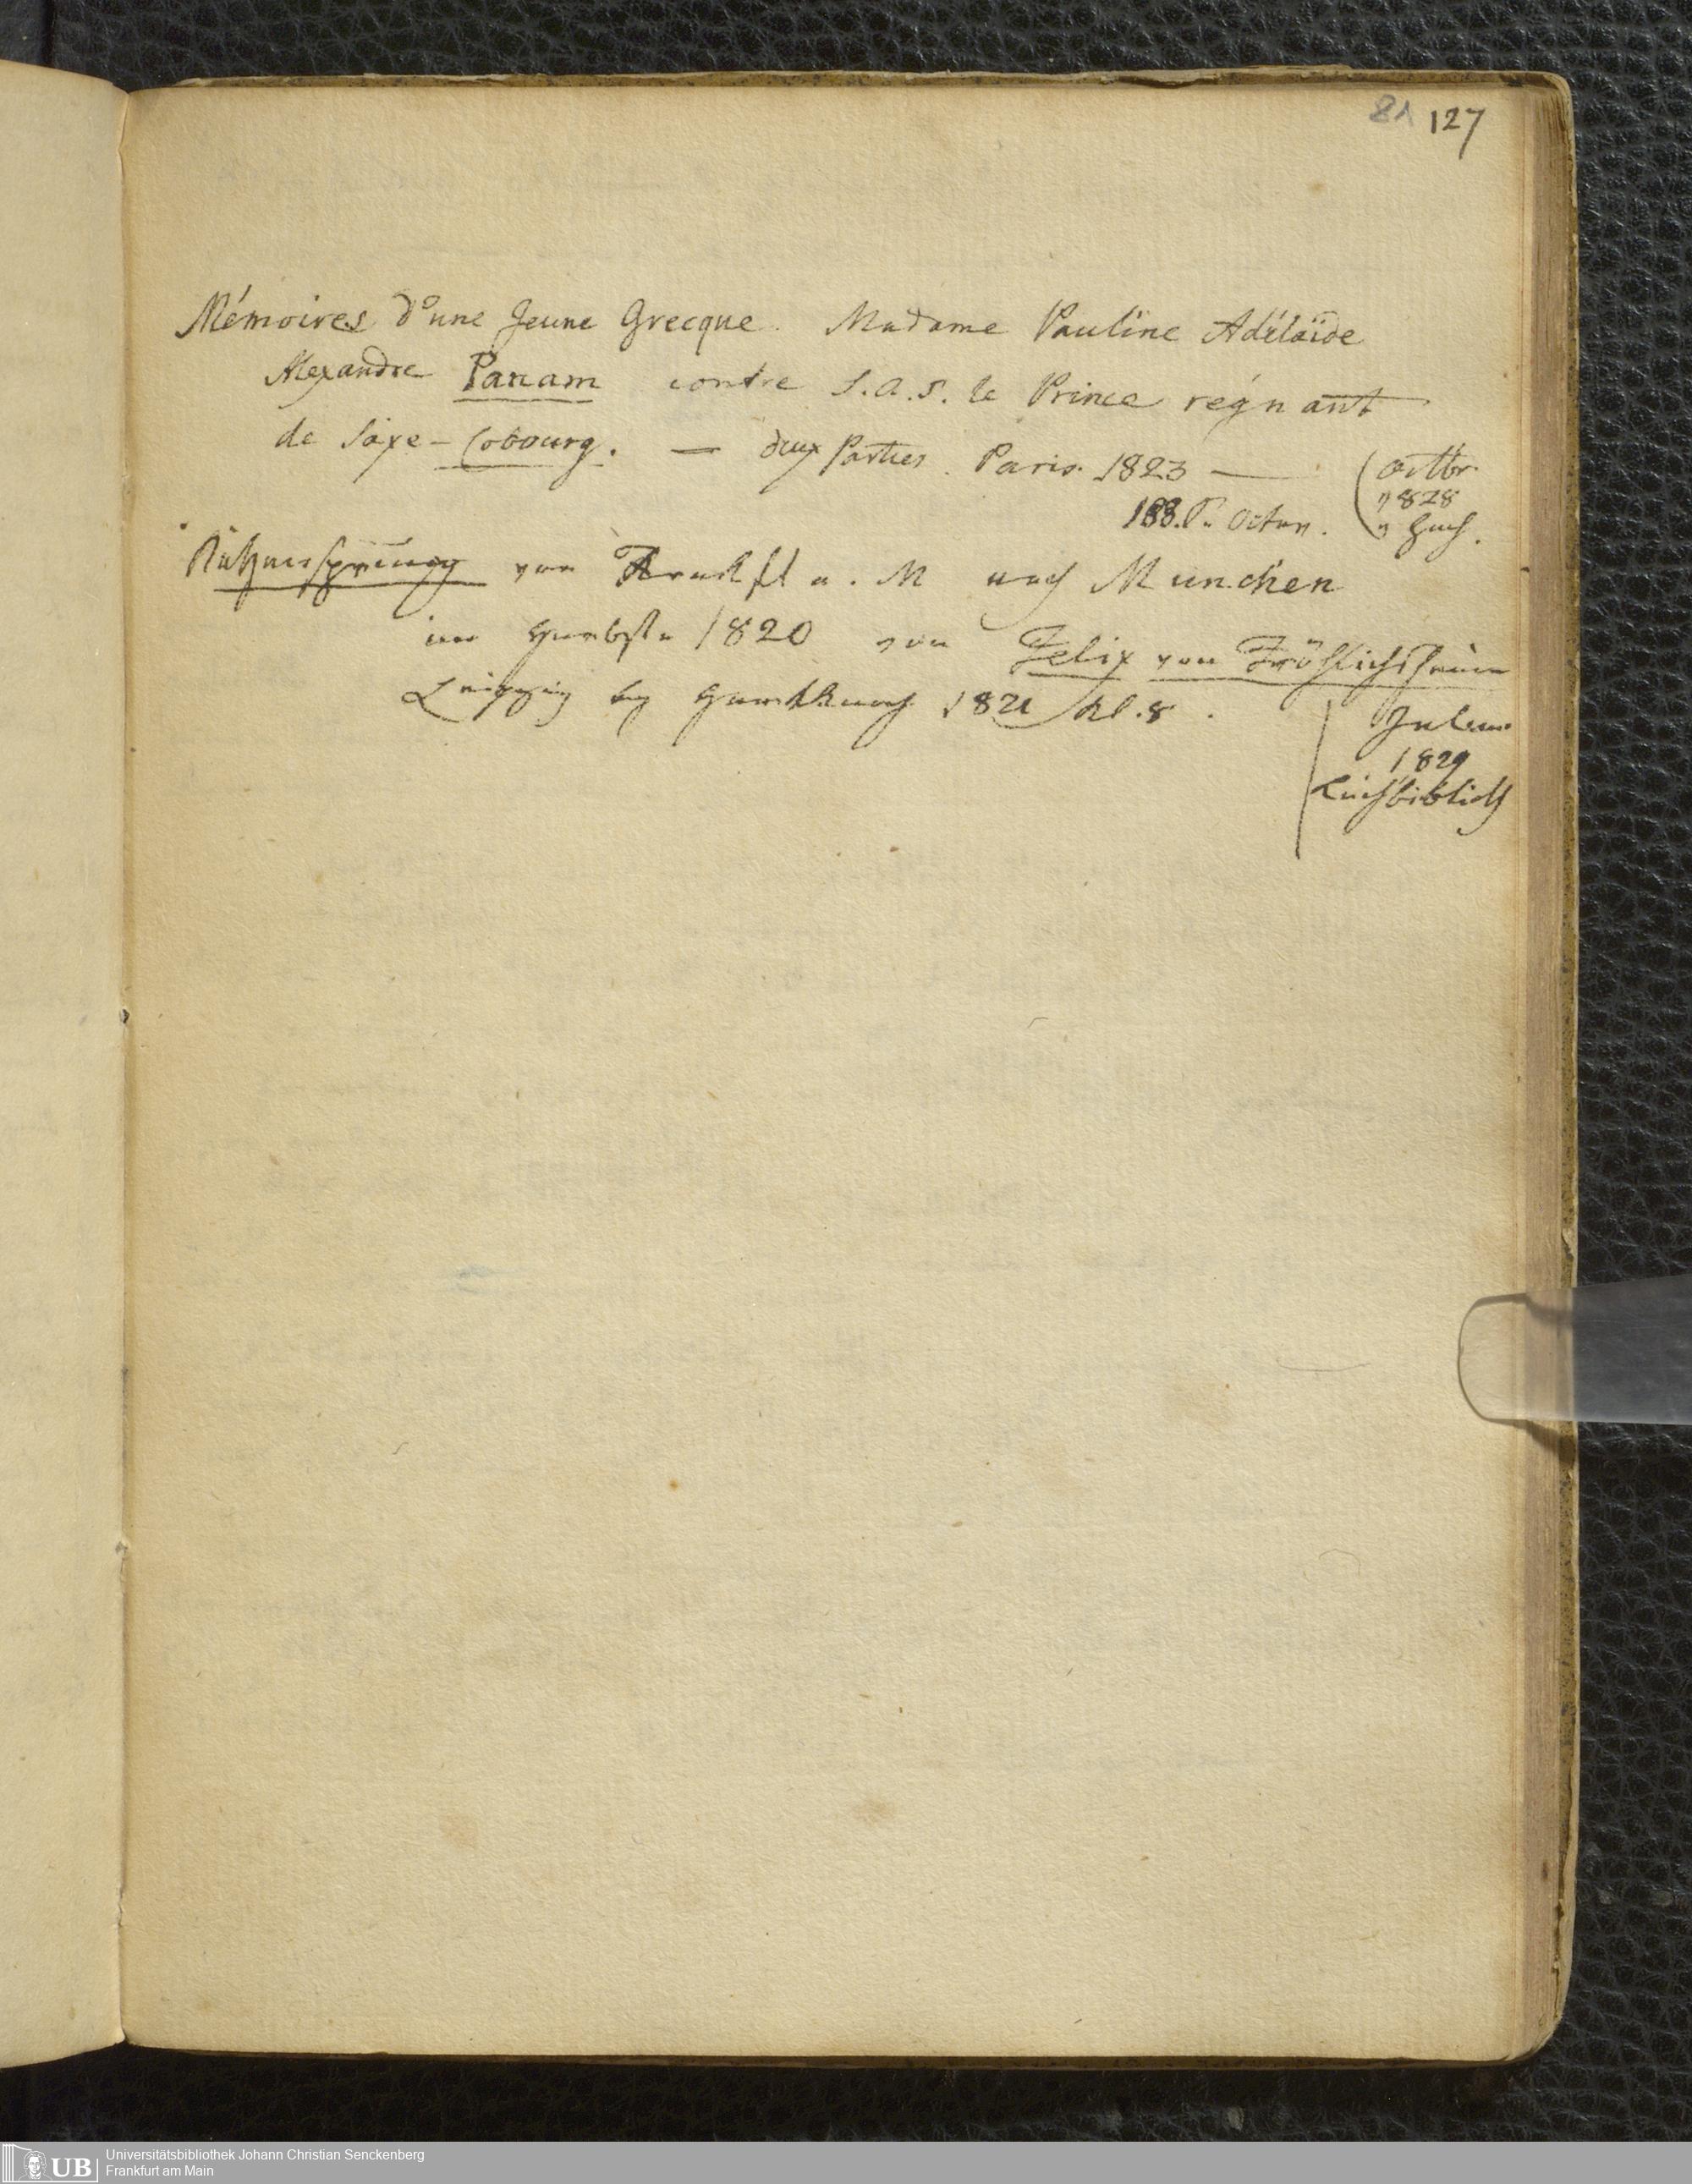 81 127
Mémoires d'une Jeune Grecque. Madame Pauline Adélaïde
Alexandre Panam contre S.A.S. le Prince régnant
de Saxe-Cobourg. — deux Parties. Paris. 1823 —
188. S. Octav.
(Octbr.
1828
Rükenssprung von Frankft a. M nach Munchen
im Herbste 1820 von Felix von Fröhlichsheim
Leipzig bey Hartknoch 1821 kl. 8.
1829
Leihbiblioth
Universitätsbibliothek Johann Christian Senckenberg
UB Frankfurt am Main